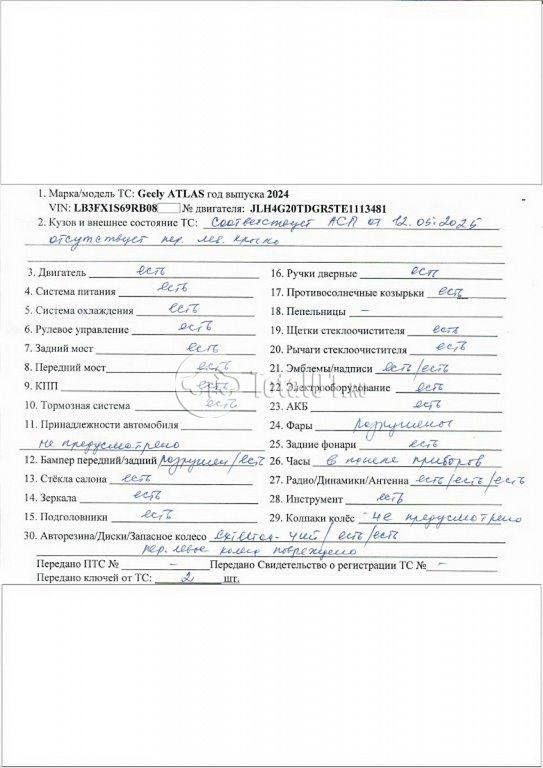 1. Марка/модель ТС: Geely ATLAS год выпуска 2024
VIN: LB3FX1S69RB08 № двигателя: JLH4G20TDGR5TE1113481
2. Кузов и внешнее состояние ТС: Соответствует АСП от 12.05.2025
отсутствует пер. лев. крыло
3. Двигатель есть
4. Система питания есть
5. Система охлаждения есть
6. Рулевое управление есть
7. Задний мост есть
8. Передний мост есть
9. КПП есть
10. Тормозная система есть
11. Принадлежности автомобиля
не предусмотрено
12. Бампер передний/задний разрушен/есть
13. Стёкла салона есть
14. Зеркала есть
15. Подголовники есть
16. Ручки дверные есть
17. Противосолнечные козырьки есть
18. Пепельницы –
19. Щетки стеклоочистителя есть
20. Рычаги стеклоочистителя есть
21. Эмблемы/надписи есть/есть
22. Электрооборудование есть
23. АКБ есть
24. Фары разрушены
25. Задние фонари есть
26. Часы в панеле приборов
27. Радио/Динамики/Антенна есть/есть/есть
28. Инструмент есть
29. Колпаки колёс не предусмотрено
30. Авторезина/Диски/Запасное колесо / есть/есть
пер. левое колесо повреждено
Передано ПТС № – Передано Свидетельство о регистрации ТС № –
Передано ключей от ТС: 2 шт.